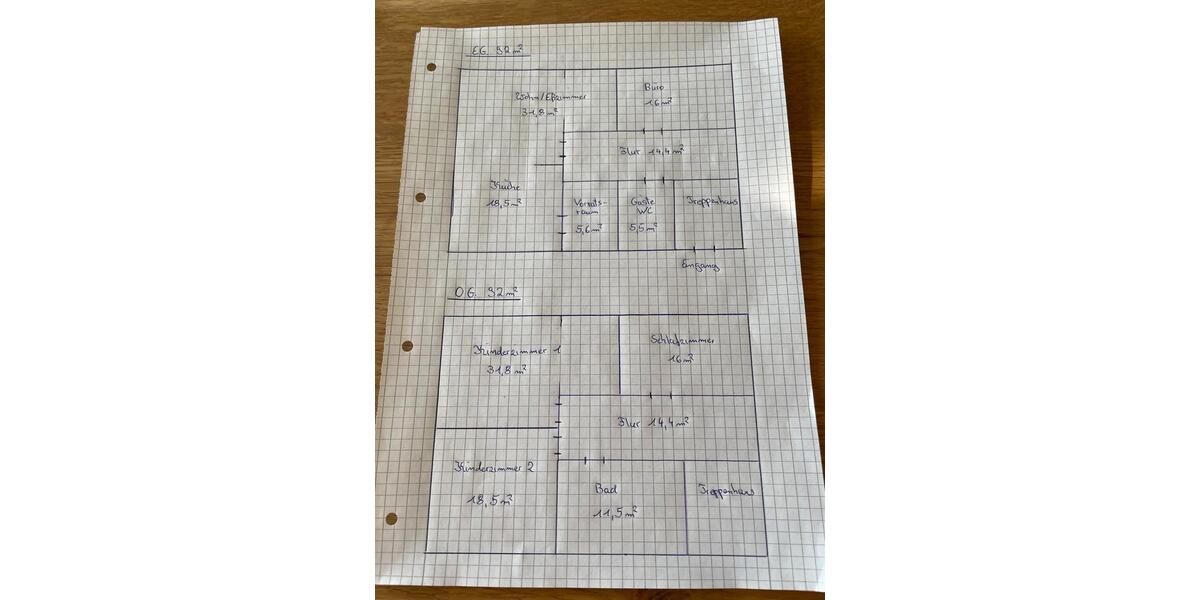 EG. 92m²
Wohn/Eßzimmer
31,8 m²
Büro
16m²
Flur 14,4m²
Küche
18,5m²
Vorrats-
raum
5,6m²
Gäste
WC
5,5m²
Treppenhaus
Eingang
OG. 92m²
Kinderzimmer 1
31,8 m²
Schlafzimmer
16m²
Flur 14,4m²
Kinderzimmer 2
18,5m²
Bad
11,5m²
Treppenhaus